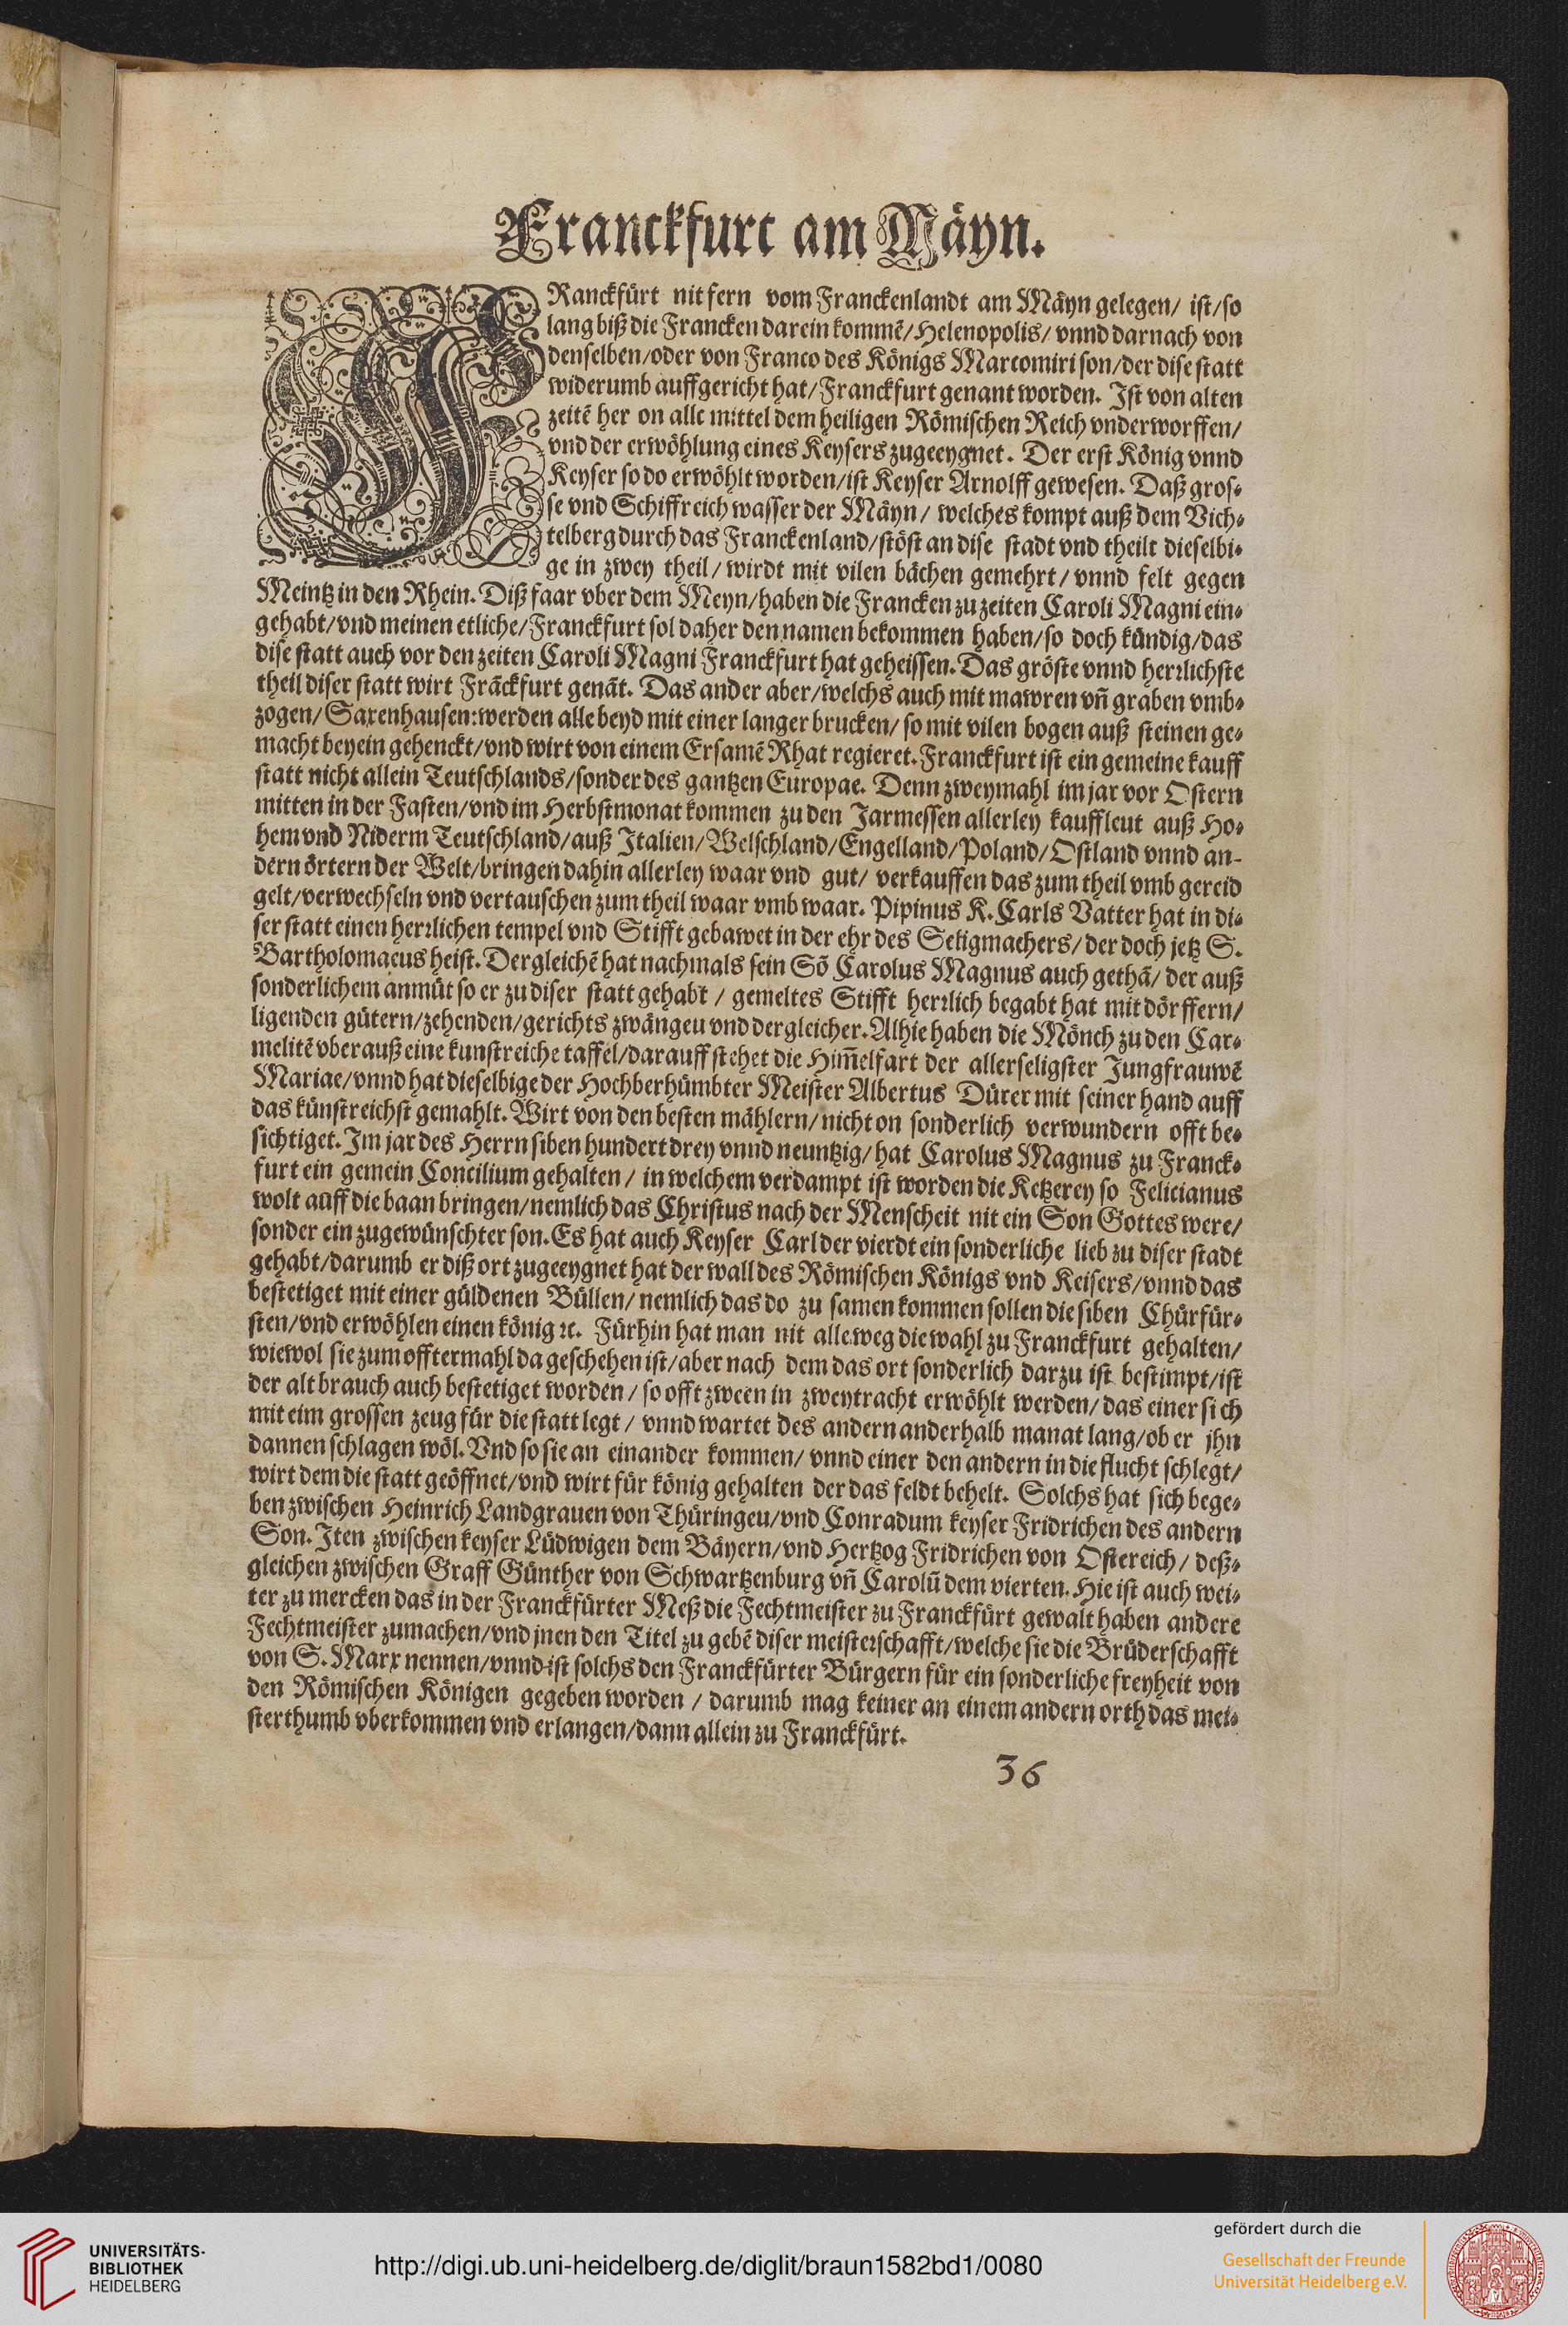 Franckfurt am Mäyn.
FRanckfürt nit fern vom Franckenlandt am Mäyn gelegen/ ist/so
lang biß die Francken darein kommẽ/Helenopolis/ vnnd darnach von
denselben/oder von Franco des Königs Marcomiri son/der dise statt
widerumb auffgericht hat/Franckfurt genant worden. Ist von alten
zeitẽ her on alle mittel dem heiligen Römischen Reich vnderworffen/
vnd der erwöhlung eines Keysers zugeeygnet. Der erst König vnnd
Keyser so do erwöhlt worden/ist Keyser Arnolff gewesen. Daß gros-
se vnd Schiffreich wasser der Mäyn/ welches kompt auß dem Vich-
telberg durch das Franckenland/stöst an dise stadt vnd theilt dieselbi-
ge in zwey theil/ wirdt mit vilen bächen gemehrt/ vnnd felt gegen
Meintz in den Rhein. Diß faar vber dem Meyn/haben die Francken zu zeiten Caroli Magni ein-
gehabt/vnd meinen etliche/Franckfurt sol daher den namen bekommen haben/so doch kündig/das
dise statt auch vor den zeiten Caroli Magni Franckfurt hat geheissen. Das gröste vnnd herrlichste
theil diser statt wirt Frãckfurt genãt. Das ander aber/welchs auch mit mawren vñ graben vmb-
zogen/Saxenhausen:werden alle beyd mit einer langer brucken/ so mit vilen bogen auß steinen ge-
macht beyein gehenckt/vnd wirt von einem Ersamẽ Rhat regieret. Franckfurt ist ein gemeine kauff
statt nicht allein Teutschlands/sonder des gantzen Europae. Denn zweymahl im jar vor Ostern
mitten in der Fasten/vnd im Herbstmonat kommen zu den Jarmessen allerley kauffleut auß Ho-
hem vnd Niderm Teutschland/auß Italien/Welschland/Engelland/Poland/Ostland vnnd an-
dern örtern der Welt/bringen dahin allerley waar vnd gut/ verkauffen das zum theil vmb gereid
gelt/verwechseln vnd vertauschen zum theil waar vmb waar. Pipinus K. Carls Vatter hat in di-
ser statt einen herrlichen tempel vnd Stifft gebawet in der ehr des Seligmachers/der doch jetz S.
Bartholomaeus heist. Dergleichẽ hat nachmals sein Sõ Carolus Magnus auch gethã/ der auß
sonderlichem anmüt so er zu diser statt gehabt / gemeltes Stifft herrlich begabt hat mit dörffern/
ligenden gütern/zehenden/gerichts zwängeu vnd dergleicher. Alhie haben die Mönch zu den Car-
melitẽ vberauß eine kunstreiche taffel/darauff stehet die Him̃elfart der allerseligster Jungfrauwẽ
Mariae/vnnd hat dieselbige der Hochberhümbter Meister Albertus Dürer mit seiner hand auff
das künstreichst gemahlt. Wirt von den besten mählern/nicht on sonderlich verwundern offt be-
sichtiget. Im jar des Herrn siben hundert drey vnnd neuntzig/hat Carolus Magnus zu Franck-
furt ein gemein Concilium gehalten / in welchem verdampt ist worden die Ketzerey so Felicianus
wolt auff die baan bringen/nemlich das Christus nach der Menscheit nit ein Son Gottes were/
sonder ein zugewünschter son. Es hat auch Keyser Carl der vierdt ein sonderliche lieb zu diser stadt
gehabt/darumb er diß ort zugeeygnet hat der wall des Römischen Königs vnd Keisers/vnnd das
bestetiget mit einer güldenen Büllen/ nemlich das do zu samen kommen sollen die siben Chürfür-
sten/vnd erwöhlen einen könig ꝛc. Fürhin hat man nit alleweg die wahl zu Franckfurt gehalten/
wiewol sie zum offtermahl da geschehen ist/aber nach dem das ort sonderlich darzu ist bestimpt/ist
der alt brauch auch bestetiget worden / so offt zween in zweytracht erwöhlt werden/das einer sich
mit eim grossen zeug für die statt legt / vnnd wartet des andern anderhalb manat lang/ob er jhn
dannen schlagen wöl. Vnd so sie an einander kommen/ vnnd einer den andern in die flucht schlegt/
wirt dem die statt geöffnet/vnd wirt für könig gehalten der das feldt behelt. Solchs hat sich bege-
ben zwischen Heinrich Landgrauen von Thüringeu/vnd Conradum keyser Fridrichen des andern
Son. Iten zwischen keyser Lüdwigen dem Bäyern/vnd Hertzog Fridrichen von Ostereich/ deß-
gleichen zwischen Graff Günther von Schwartzenburg vñ Carolũ dem vierten. Hie ist auch wei-
ter zu mercken das in der Franckfürter Meß die Fechtmeister zu Franckfürt gewalt haben andere
Fechtmeister zumachen/vnd jnen den Titel zu gebẽ diser meisterschafft/welche sie die Brüderschafft
von S. Marx nennen/vnnd ist solchs den Franckfürter Bürgern für ein sonderliche freyheit von
den Römischen Königen gegeben worden / darumb mag keiner an einem andern orth das mei-
sterthumb vberkommen vnd erlangen/dann allein zu Franckfürt.
36
UNIVERSITÄTS-
BIBLIOTHEK
HEIDELBERG
http://digi.ub.uni-heidelberg.de/diglit/braun1582bd1/0080
gefördert durch die
Gesellschaft der Freunde
Universität Heidelberg e.V.